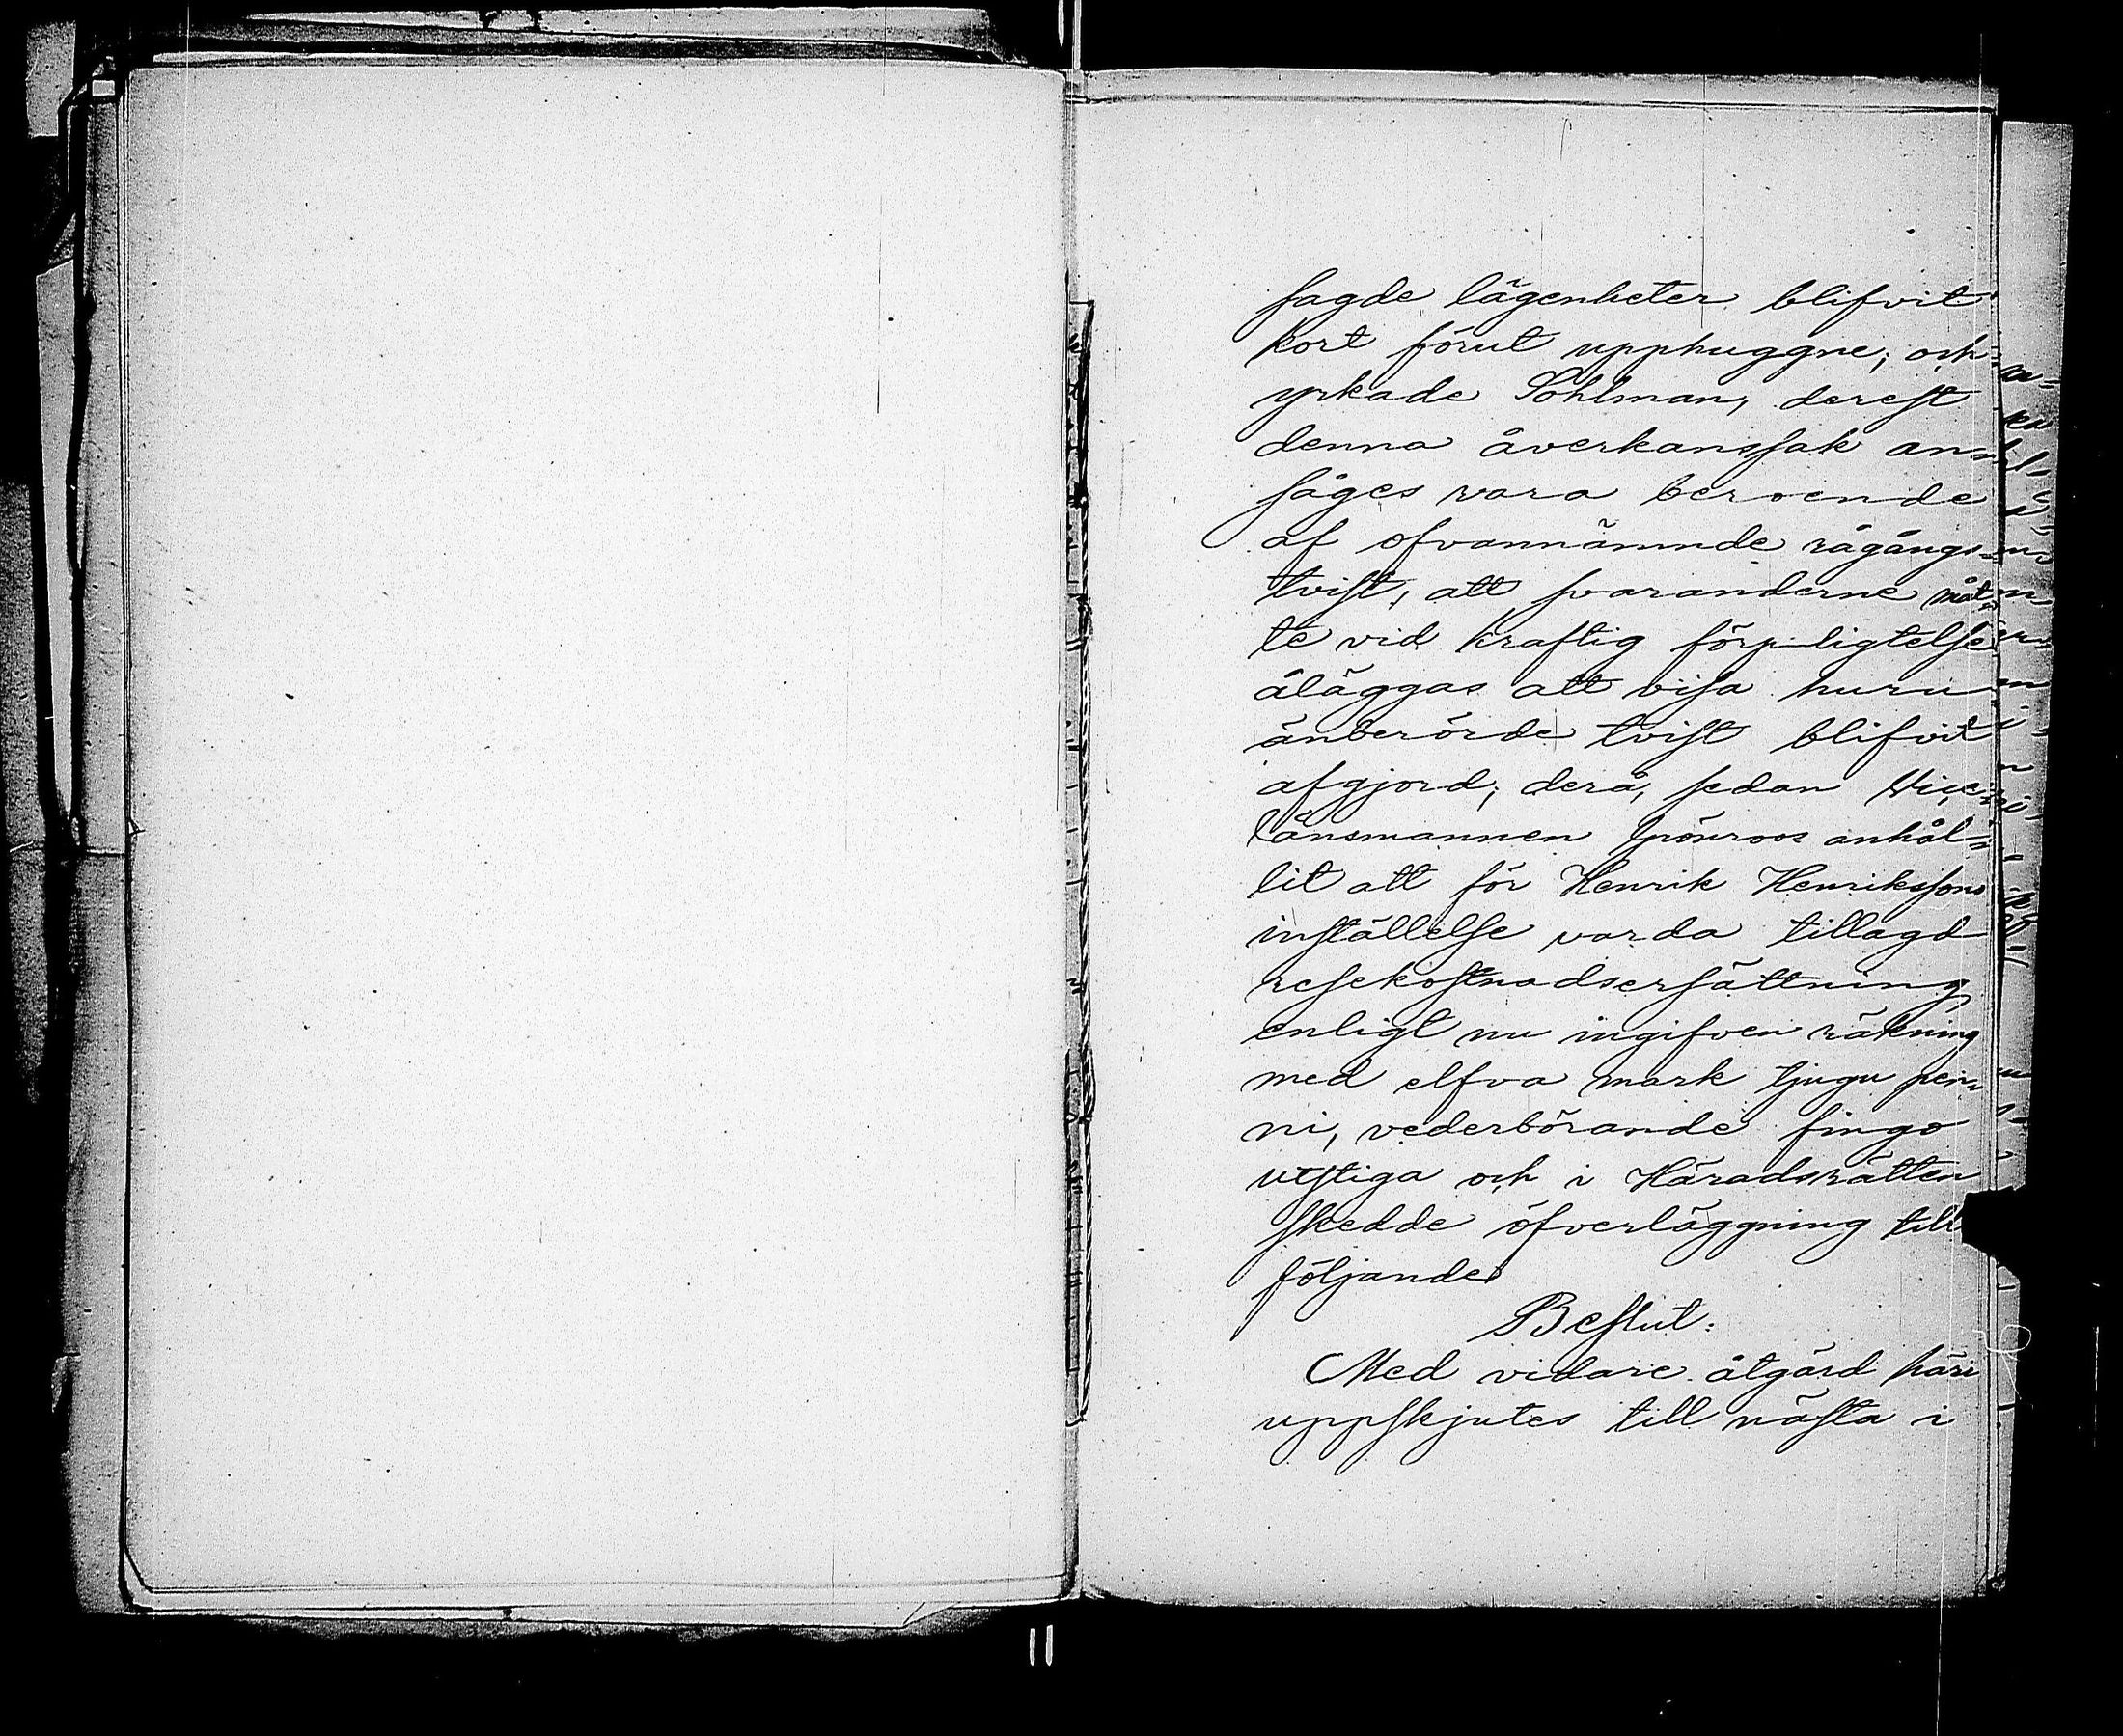 sagde lägenheter blifvit
kort förut upphuggne; och
yrkade Sohlman, derest
denna åverkanssak an-
såges vara beroende
af ofvannämnde rågångs-
tvist, att svaranderne måt-
te vid kraftig förpligtelse
åläggas att visa huru
änberörde tvist blifvit
afgjord; derå, sedan Vice-
länsmannen Grönroos anhål-
lit att för Henrik Henrikssons
inställelse varda tillagd
resekostnadsersättning
enligt nu ingifven räkning
med elfva mark tjugu pen-
ni, vederbörande fingo
utstiga och i Häradsrätten
skedde öfverläggning till
följande
Beslut:
Med vidare åtgärd häri
uppskjutes till nästa i